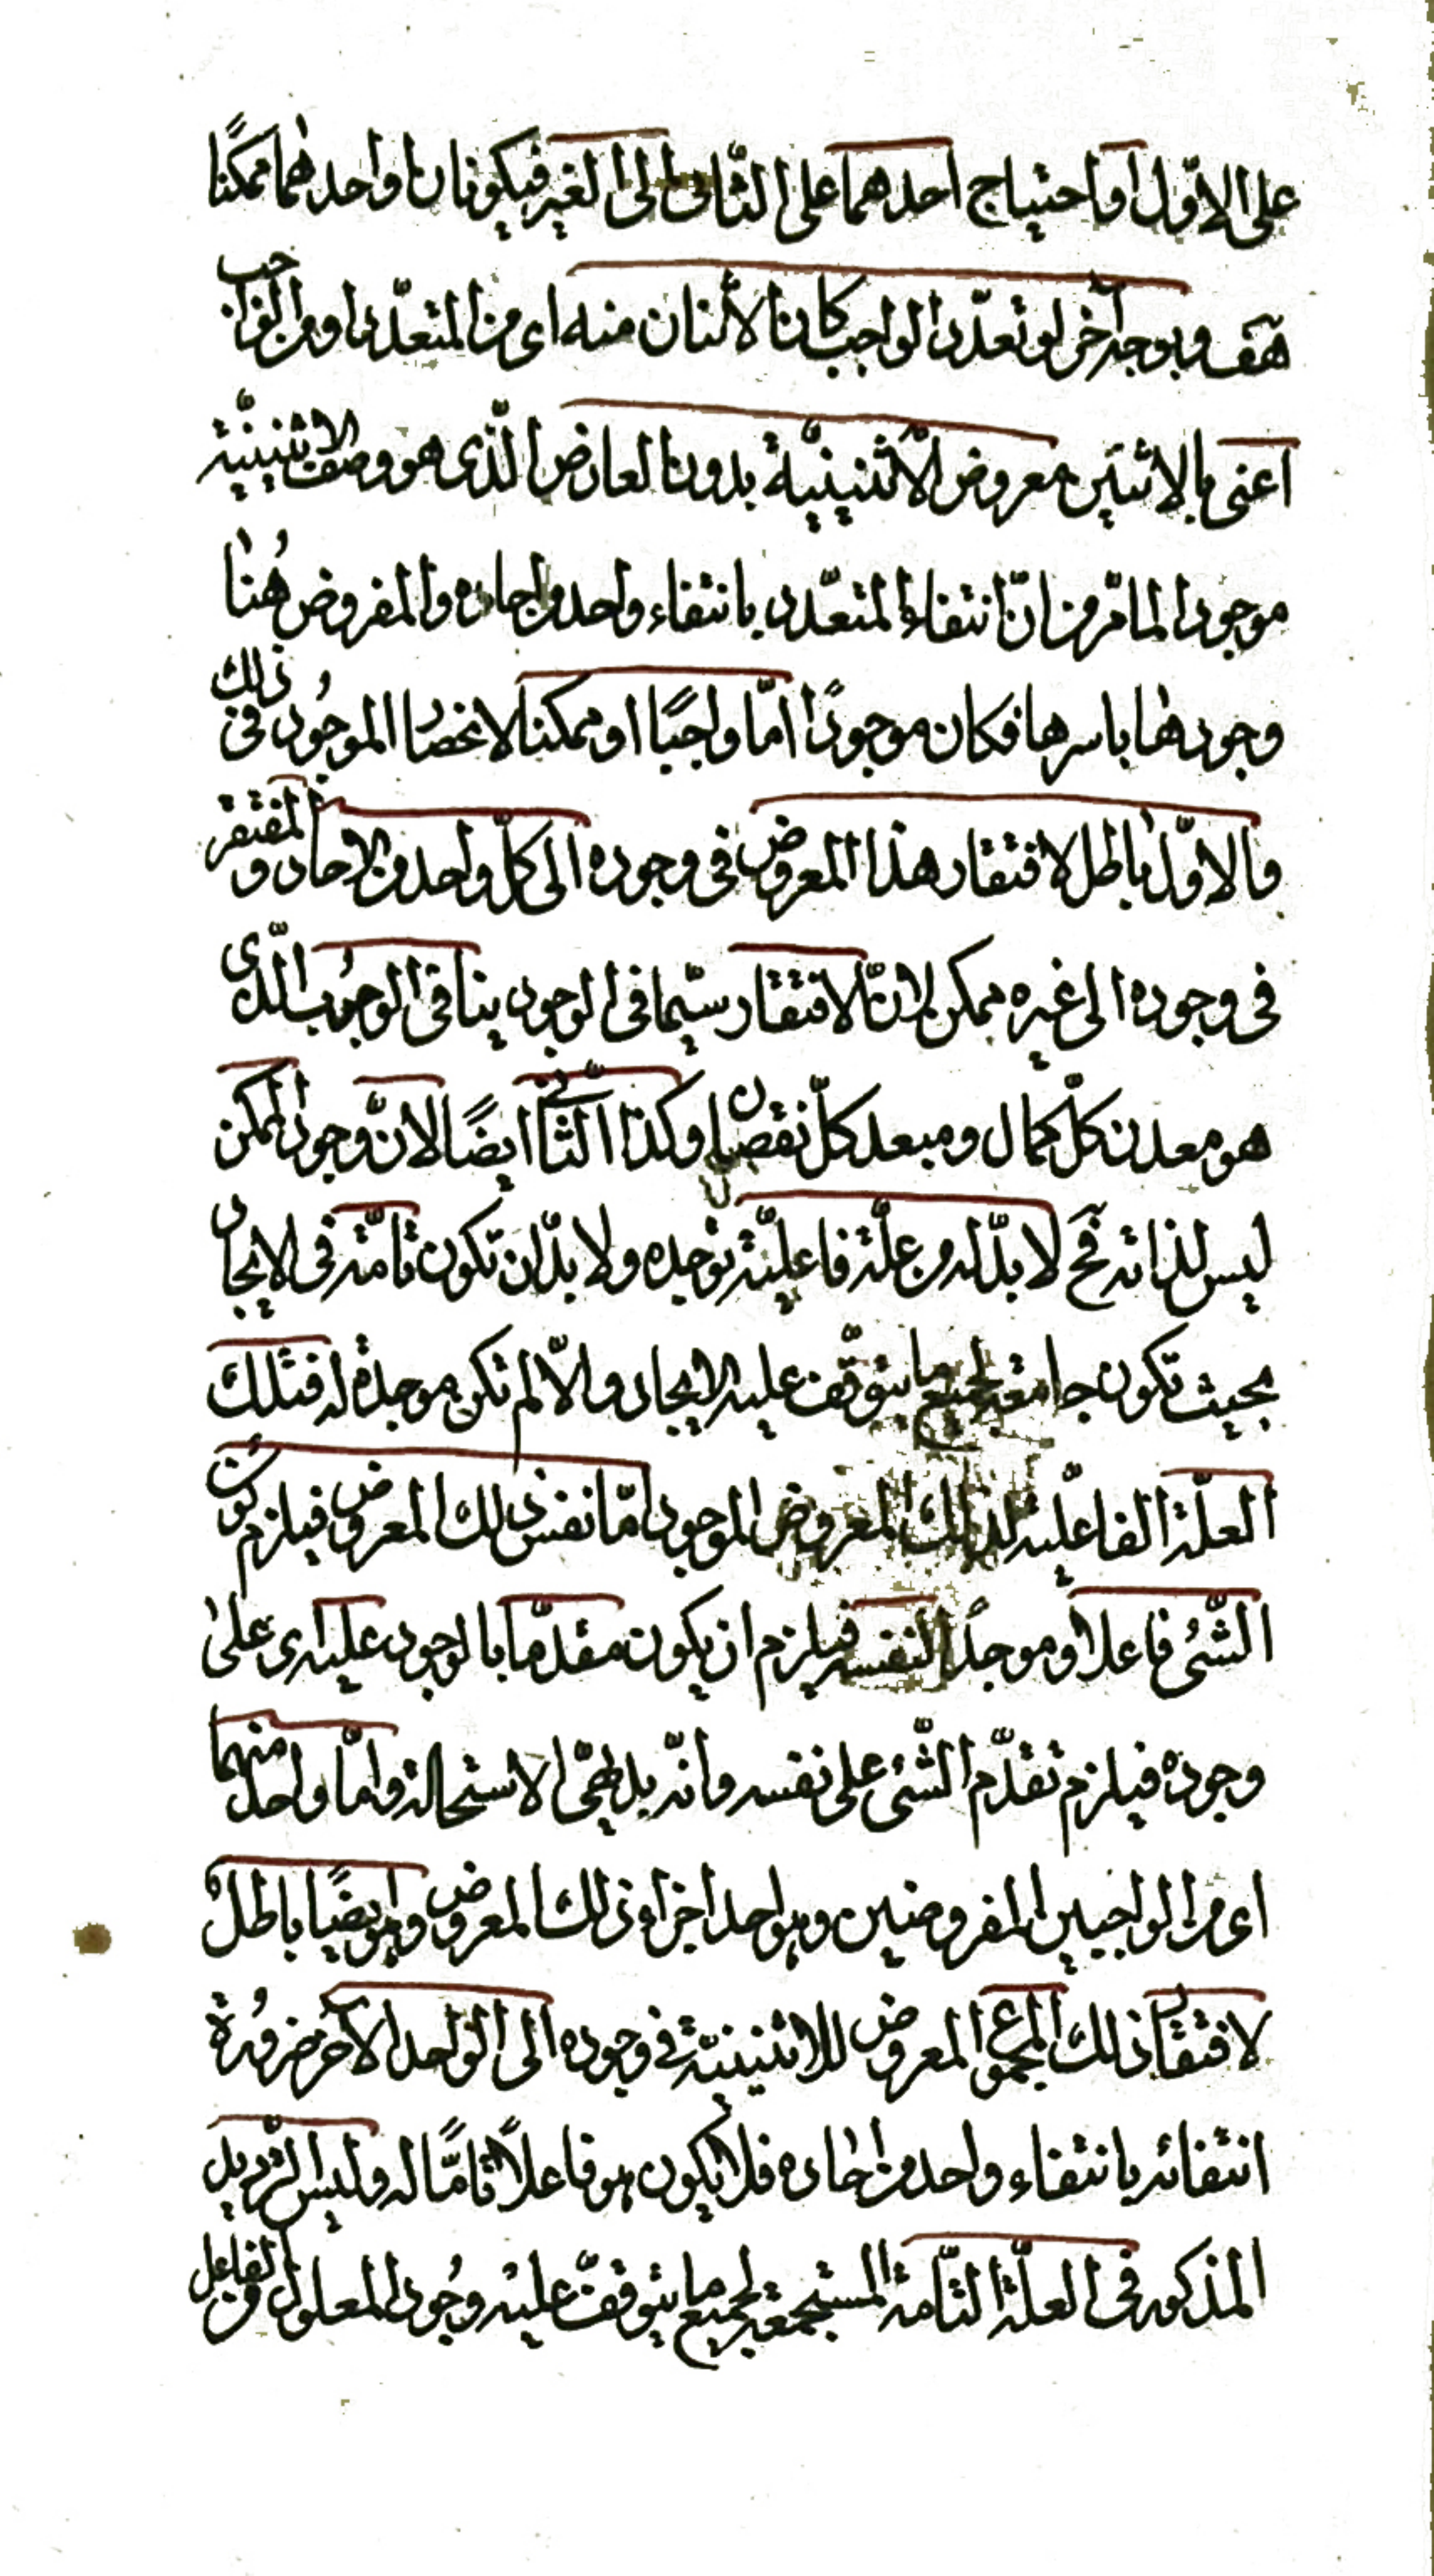 على الاوّل او احتياج احدهما على الثانى الى الغير فيكونان او احدهما ممكنًا
هف وبوجه آخر لو تعدّد الواجب كان الاثنان منه اى من المتعدّد او من الواجب
اعنى بالاثنين معروض الاثنينيّة بدون العارض الّذى هو وصف الاثنينيّة
موجودا لما مرّ من انّ انتفاء المتعدّد بانتفاء واحد من احاده والمفروض هُنا
وجودها باسرها فكان موجودًا امّا واجبًا او ممكنا لانحصار الموجُود فى ذلك
والاوّل باطل لافتقار هذا المعروض فى وجوده الى كلّ واحد من الاحاد والمفتقر
فى وجوده الى غيره ممكن لانّ الافتقار سيّما فى الوجود ينافى الوجُوب الّذى
هو معدن كلّ كمال ومبعد كلّ نقصان وكذا الثانى ايضًا لانّ وجود الممكن
ليس لذاته فح لا بدّ له من علّة فاعليّة توجده ولا بدّ ان تكون تامّة فى الايجاد
بحيث تكون جامعة لجميع ما يتوقّف عليه الايجاد والّا لم تكن موجدة له فتلك
العلّة الفاعليّة لذلك المعروض الموجود امّا نفس ذلك المعروض فيلزم كون
الشّئ فاعلا وموجدًا لنفسه فيلزم ان يكون مقدّما بالوجود عليه اى على
وجوده فيلزم تقدّم الشّئ على نفسه وانّه بديهىّ الاستحالة وامّا واحد منهما
اى من الواجبين المفروضين وهو احد اجزاء ذلك المعروض وهو ايضًا باطل
لافتقار ذلك المجموع المعروض للاثنينيّة فى وجوده الى الواحد الاخر ضرورة
انتفائه بانتفاء واحد من احاده فلا يكون هو فاعلاً تامًّا له وليس الترديد
المذكور فى العلّة التّامة المستجمعة لجميع ما يتوقف عليه وجُود المعلول من الفاعل